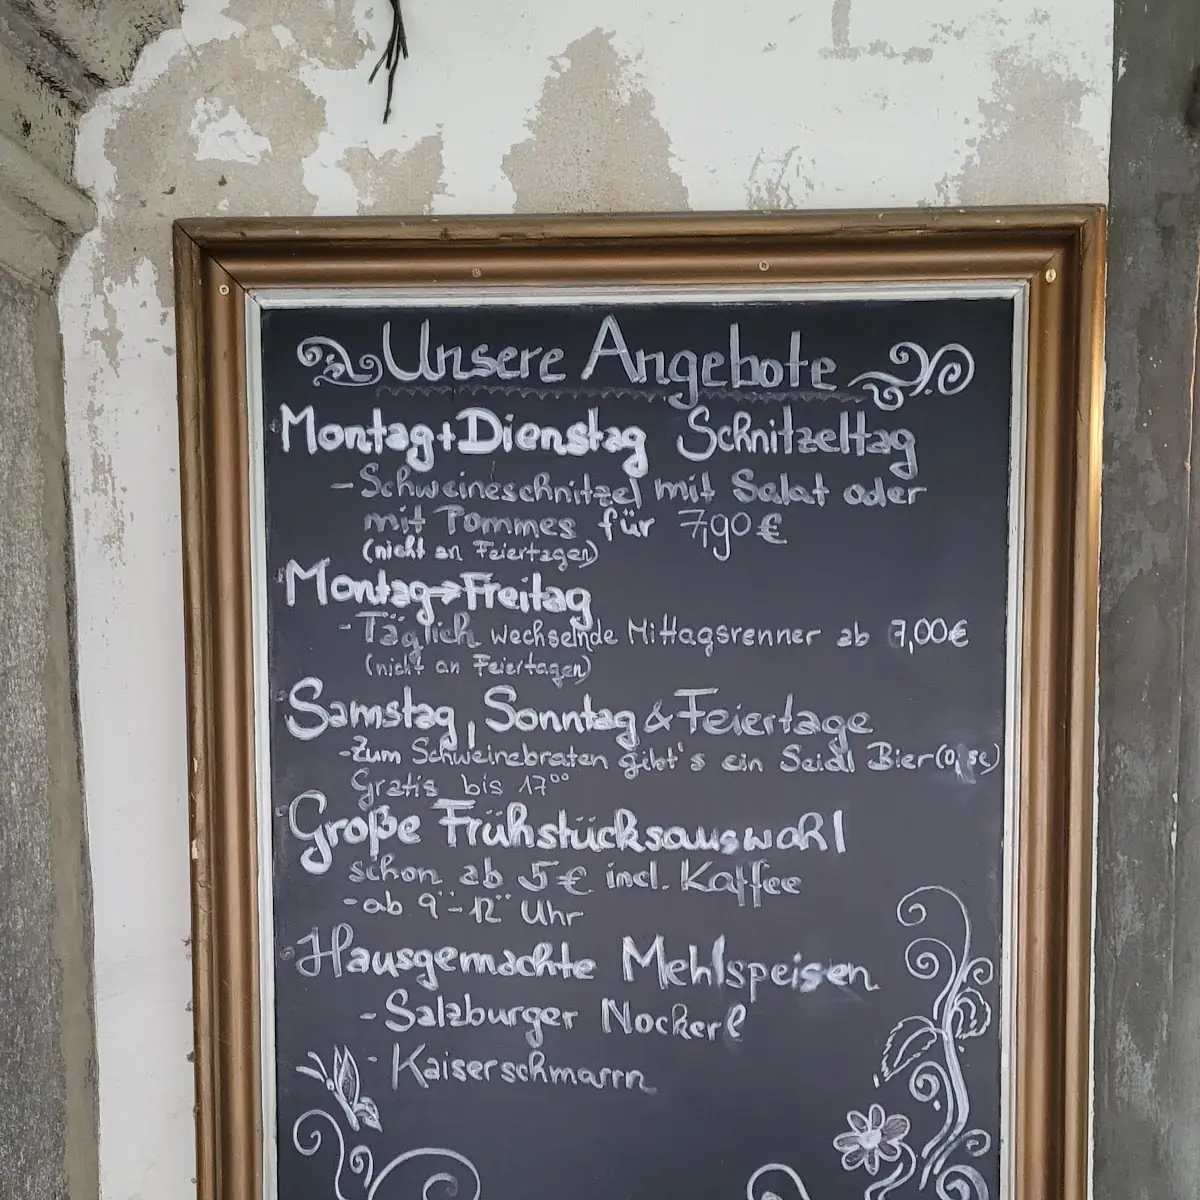 Unsere Angebote
Montag+Dienstag Schnitzeltag
- Schweineschnitzel mit Salat oder
mit Pommes für 7,90 €
(nicht an Feiertagen)
Montag→Freitag
- Täglich wechselnde Mittagsrenner ab 7,00€
(nicht an Feiertagen)
Samstag, Sonntag & Feiertage
- Zum Schweinebraten gibt's ein Seidl Bier
Gratis bis 17⁰⁰
Große Frühstücksauswahl
schon ab 5€ incl. Kaffee
- ab 9⁰⁰-12⁰⁰ Uhr
Hausgemachte Mehlspeisen
- Salzburger Nockerl
- Kaiserschmarrn